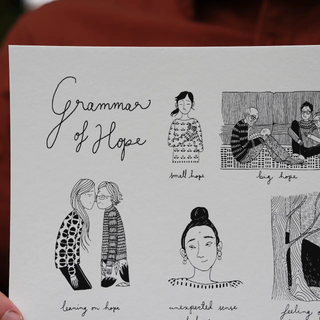 Grammar
of Hope
small hope
big hope
leaning on hope
unexpected sense
feeling